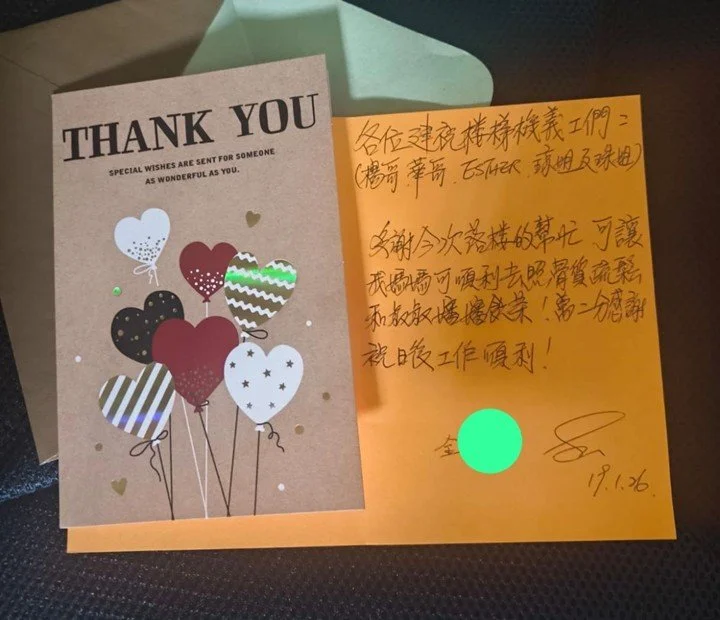 THANK YOU
SPECIAL WISHES ARE SENT FOR SOMEONE
AS WONDERFUL AS YOU.
各位建祝樓梯機義工們：
(楊哥、華哥、ESTHER、琼明及珠姐)
多謝今次落楼的幫忙 可讓
我媽媽可順利去照骨質疏鬆
和叔叔嬸嬸飲茶！萬二分感謝
祝日後工作順利！
全
19.1.26.